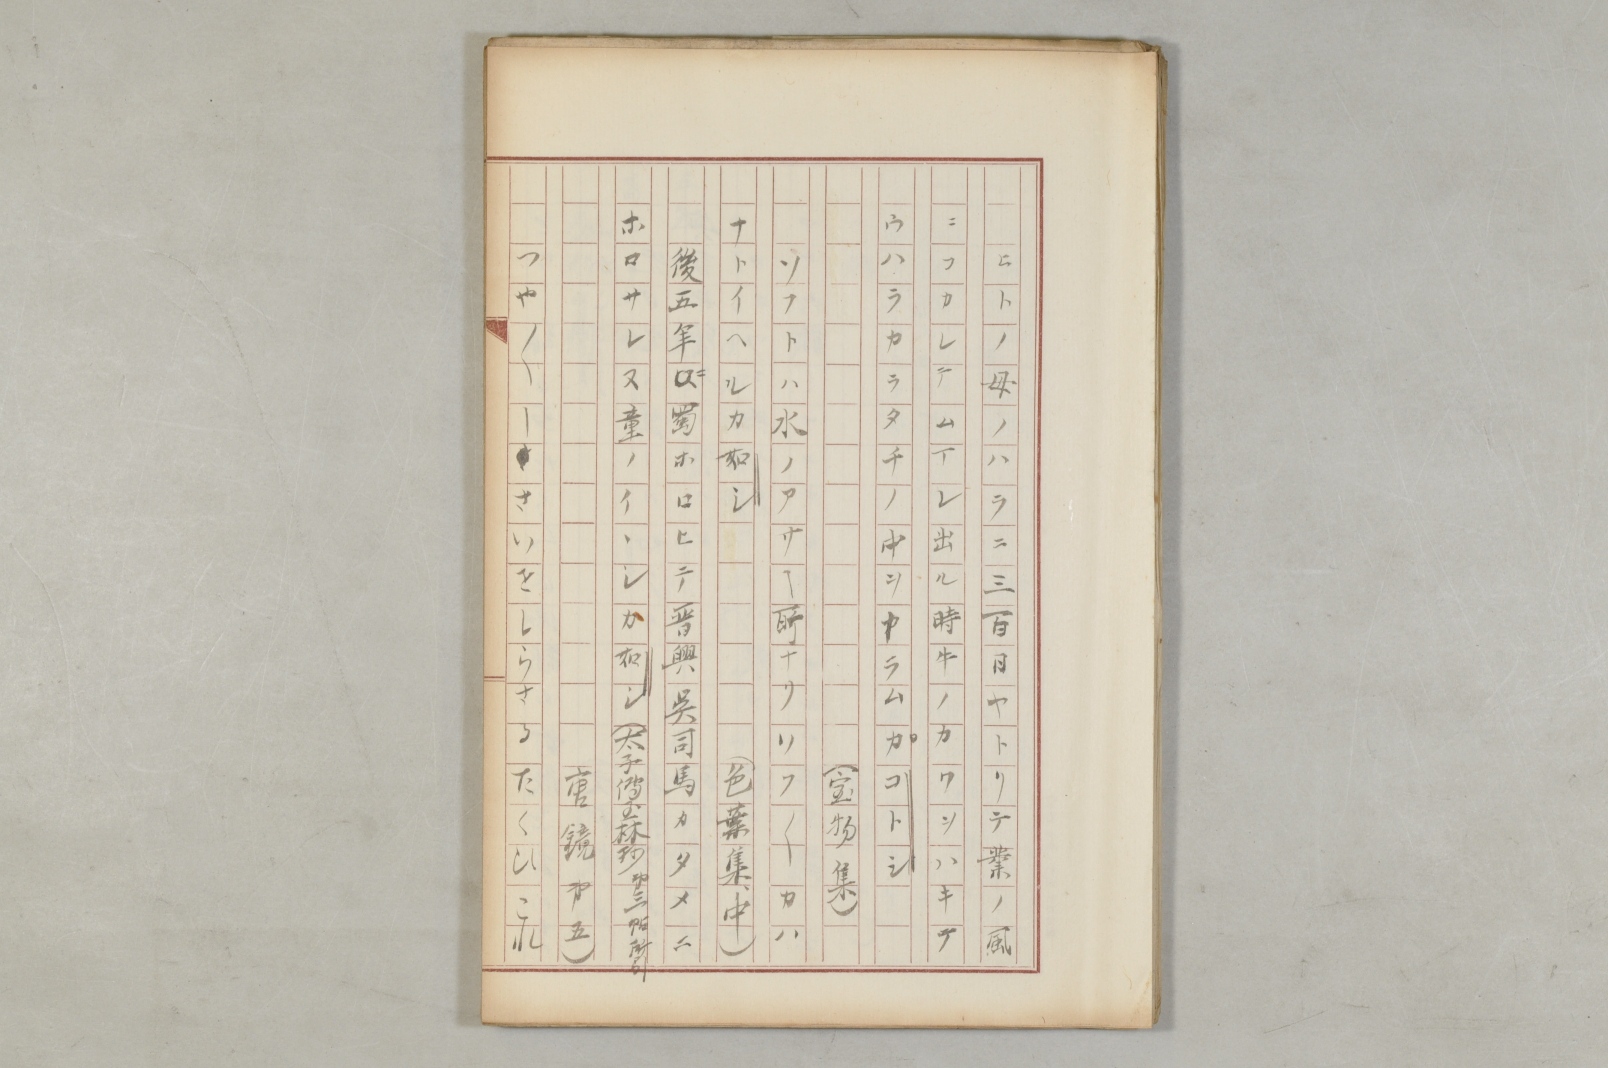 ヒトノ母ノハラニ三百日ヤトリテ業ノ風
ニフカレテムマレ出ル時牛ノカワソハキテ
ウハラカラタチノ中ニ中ラムカコトシ
(宝物集)
ソフトハ水ノアサキ所ナリリフ〳〵カハ
ナトイヘルカ如シ
(色葉集、中)
後五年ニ蜀ホロヒテ晋興呉司馬カタメニ
ホロサレヌ童ノイヽシカ如シ(太子傳玉林抄 第三帖所引
唐鏡第五)
つや〳〵しさいをしらさるたくひこれ